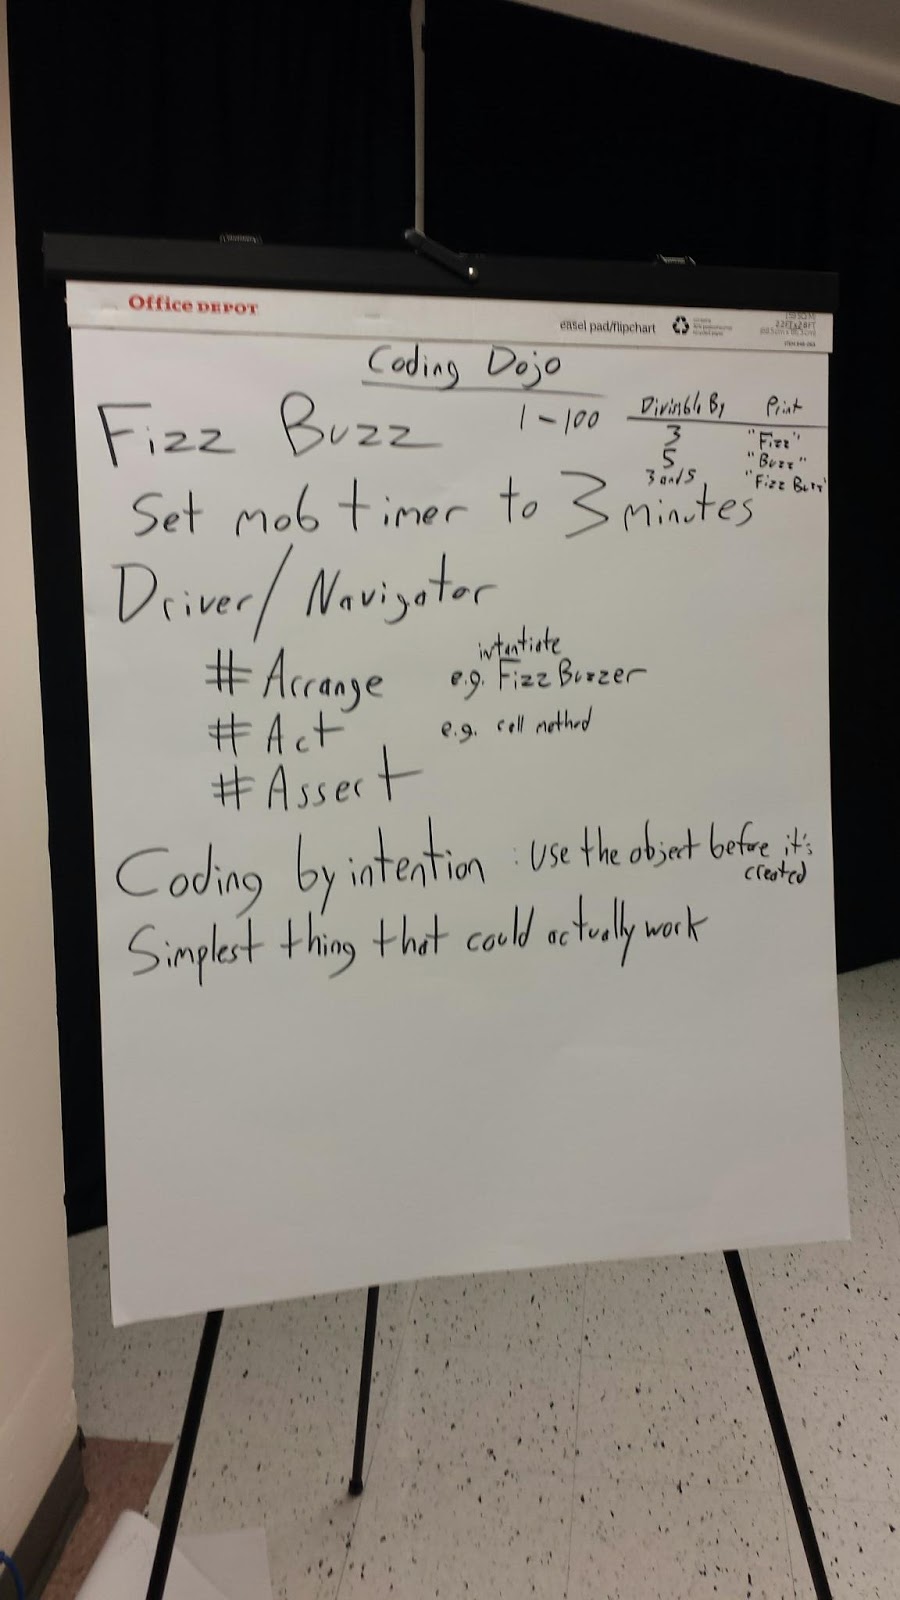 Office DEPOT
easel pad/flipchart
Coding Dojo
Fizz Buzz 1-100
Divisible By Print
3 "Fizz"
5 "Buzz"
3 and 5 "Fizz Buzz"
Set mob timer to 3 minutes
Driver/Navigator
intantiate
# Arrange e.g. FizzBuzzer
# Act e.g. call method
# Assert
Coding by intention : Use the object before it's
created
Simplest thing that could actually work